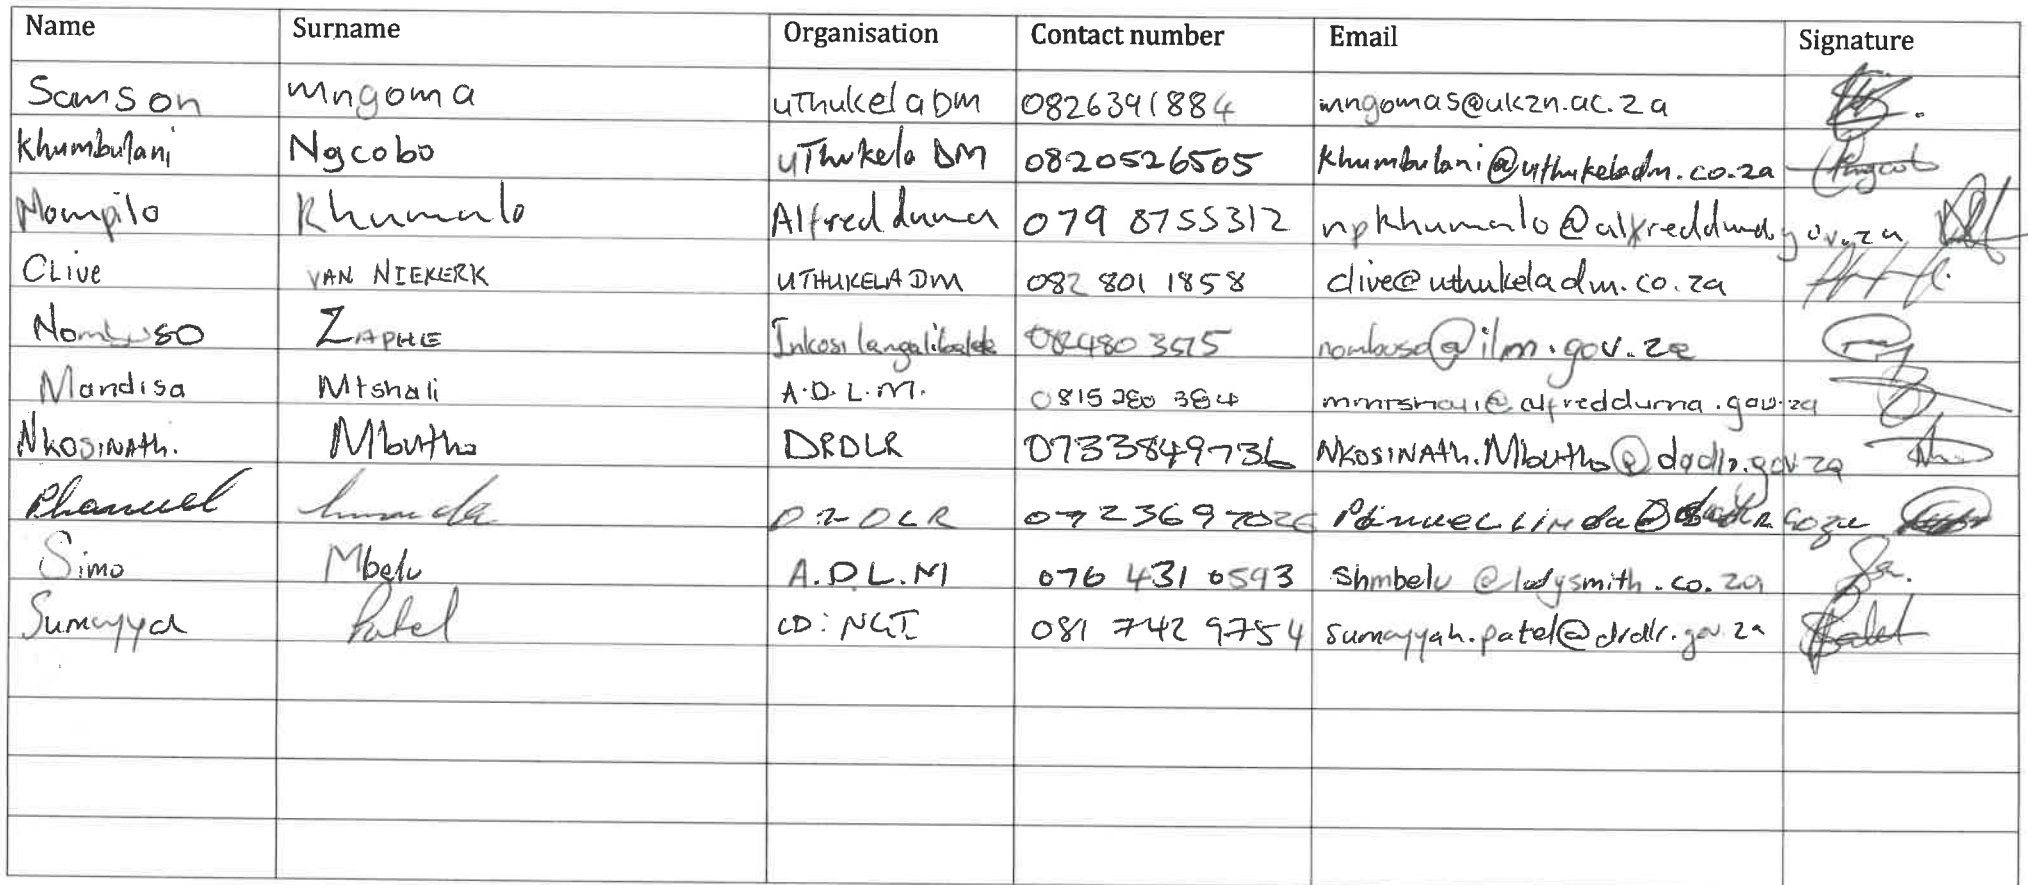 Name Surname Organisation Contact number Email Signature
Samson Mngoma uThukela DM 0826391884 mngomas@ukzn.ac.za
Khumbulani Ngcobo uThukela DM 0820526505 khumbulani@uthukeladm.co.za
Nompilo Khumalo Alfred duma 079 8755312 npkhumalo@alfredduma.gov.za
Clive VAN NIEKERK UTHUKELA DM 082 801 1858 clive@uthukeladm.co.za
Nombuso ZAPHE Inkosi langalibalele nombuso@ilm.gov.za
Mandisa Mtshali A.D.L.M. 0815 280 384 mmtshali@alfredduma.gov.za
NKOSINAth. Mbutho DRDLR 0733849736 NKOSINAth.Mbutho@drdlr.gov.za
Phanuel DRDLR
Simo Mbelu A.D.L.M 076 431 0593 Shmbelu @ladysmith.co.za
Sumayya Patel CD: NGI 081 742 9754 sumayyah.patel@drdlr.gov.za